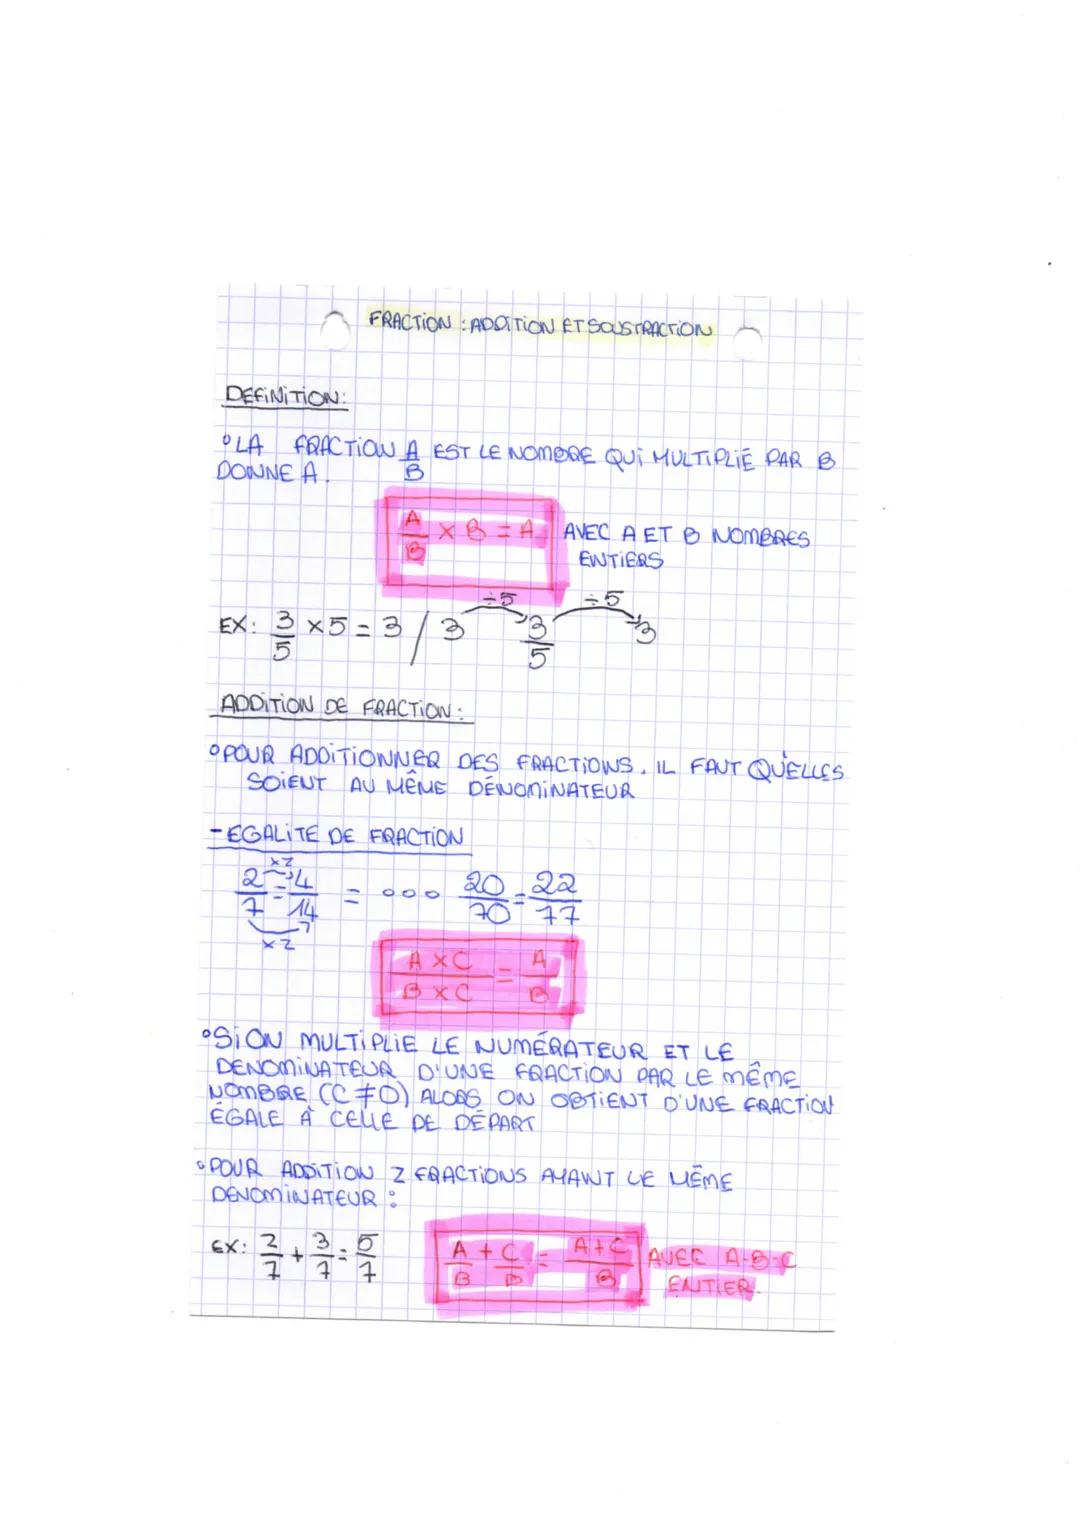 FRACTION : ADDITION ET SOUSTRACTION
DEFINITION:
° LA FRACTION A/B EST LE NOMBRE QUI MULTIPLIÉ PAR B
DONNE A.
A/B × B = A AVEC A ET B NOMBRES
ENTIERS
EX: 3/5 × 5 = 3 / 3 ÷5 3/5 ÷5 3
ADDITION DE FRACTION :
° POUR ADDITIONNER DES FRACTIONS, IL FAUT QU'ELLES
SOIENT AU MÊME DÉNOMINATEUR
- EGALITE DE FRACTION
×2
2/7 = 4/14 = °°° 20/70 = 22/77
×2
A × C / B × C = A/B
° SI ON MULTIPLIE LE NUMÉRATEUR ET LE
DENOMINATEUR D'UNE FRACTION PAR LE MÊME
NOMBRE (C ≠ 0) ALORS ON OBTIENT D'UNE FRACTION
ÉGALE À CELLE DE DÉPART
° POUR ADDITION 2 FRACTIONS AYANT LE MÊME
DENOMINATEUR :
EX: 2/7 + 3/7 = 5/7 A/B + C/B = A+C/B AVEC A-B-C
ENTIER.